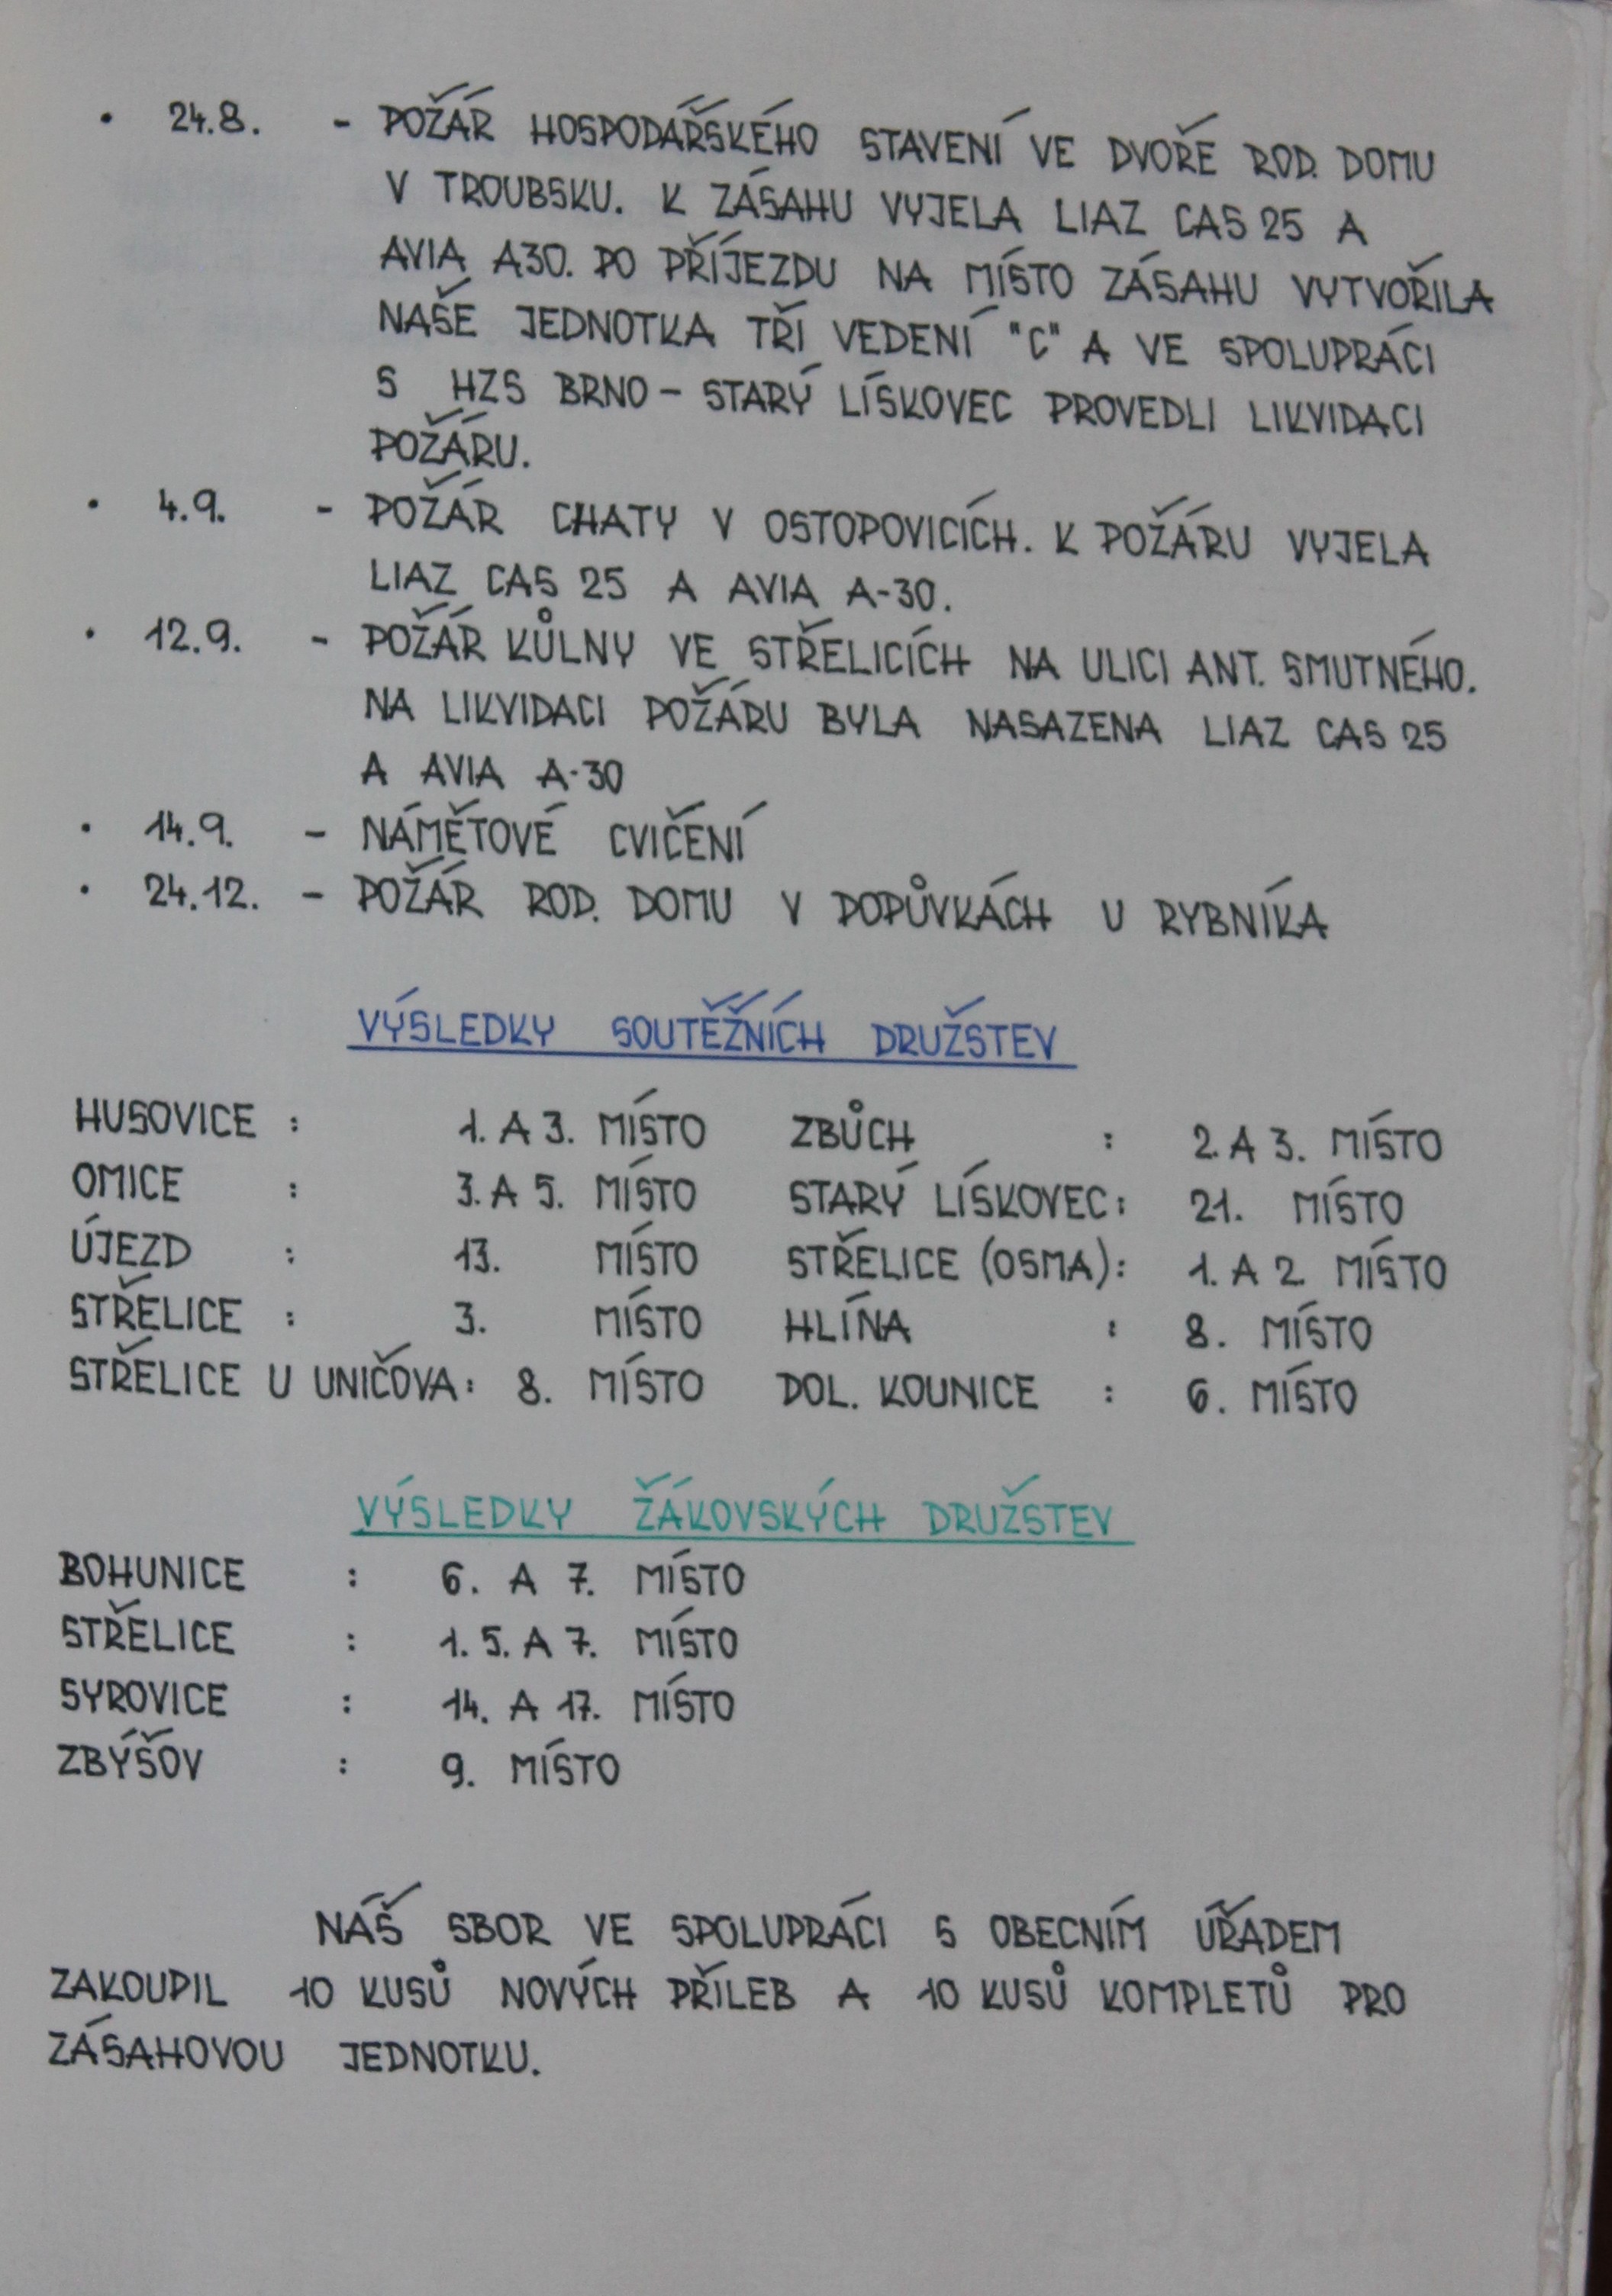 • 24.8. - POŽÁR HOSPODÁŘSKÉHO STAVENÍ VE DVOŘE ROD. DOMU
V TROUBSKU. K ZÁSAHU VYJELA LIAZ CAS 25 A
AVIA A30. PO PŘÍJEZDU NA MÍSTO ZÁSAHU VYTVOŘILA
NAŠE JEDNOTKA TŘÍ VEDENÍ "C" A VE SPOLUPRÁCI
S HZS BRNO - STARÝ LÍSKOVEC PROVEDLI LIKVIDACI
POŽÁRU.
• 4.9. - POŽÁR CHATY V OSTOPOVICÍCH. K POŽÁRU VYJELA
LIAZ CAS 25 A AVIA A-30.
• 12.9. - POŽÁR KŮLNY VE STŘELICÍCH NA ULICI ANT. SMUTNÉHO.
NA LIKVIDACI POŽÁRU BYLA NASAZENA LIAZ CAS 25
A AVIA A-30
• 14.9. - NÁMĚTOVÉ CVIČENÍ
• 24.12. - POŽÁR ROD. DOMU V DOPŮVKÁCH U RYBNÍKA
VÝSLEDKY SOUTĚŽNÍCH DRUŽSTEV
HUSOVICE : 1. A 3. MÍSTO ZBŮCH : 2. A 3. MÍSTO
OMICE : 3. A 5. MÍSTO STARÝ LÍSKOVEC : 21. MÍSTO
ÚJEZD : 13. MÍSTO STŘELICE (OSMA) : 1. A 2. MÍSTO
STŘELICE : 3. MÍSTO HLÍNA : 8. MÍSTO
STŘELICE U UNIČOVA : 8. MÍSTO DOL. KOUNICE : 6. MÍSTO
VÝSLEDKY ŽÁKOVSKÝCH DRUŽSTEV
BOHUNICE : 6. A 7. MÍSTO
STŘELICE : 1. 5. A 7. MÍSTO
SYROVICE : 14. A 17. MÍSTO
ZBÝŠOV : 9. MÍSTO
NÁŠ SBOR VE SPOLUPRÁCI S OBECNÍM ÚŘADEM
ZAKOUPIL 10 KUSŮ NOVÝCH PŘILEB A 10 KUSŮ KOMPLETŮ PRO
ZÁSAHOVOU JEDNOTKU.